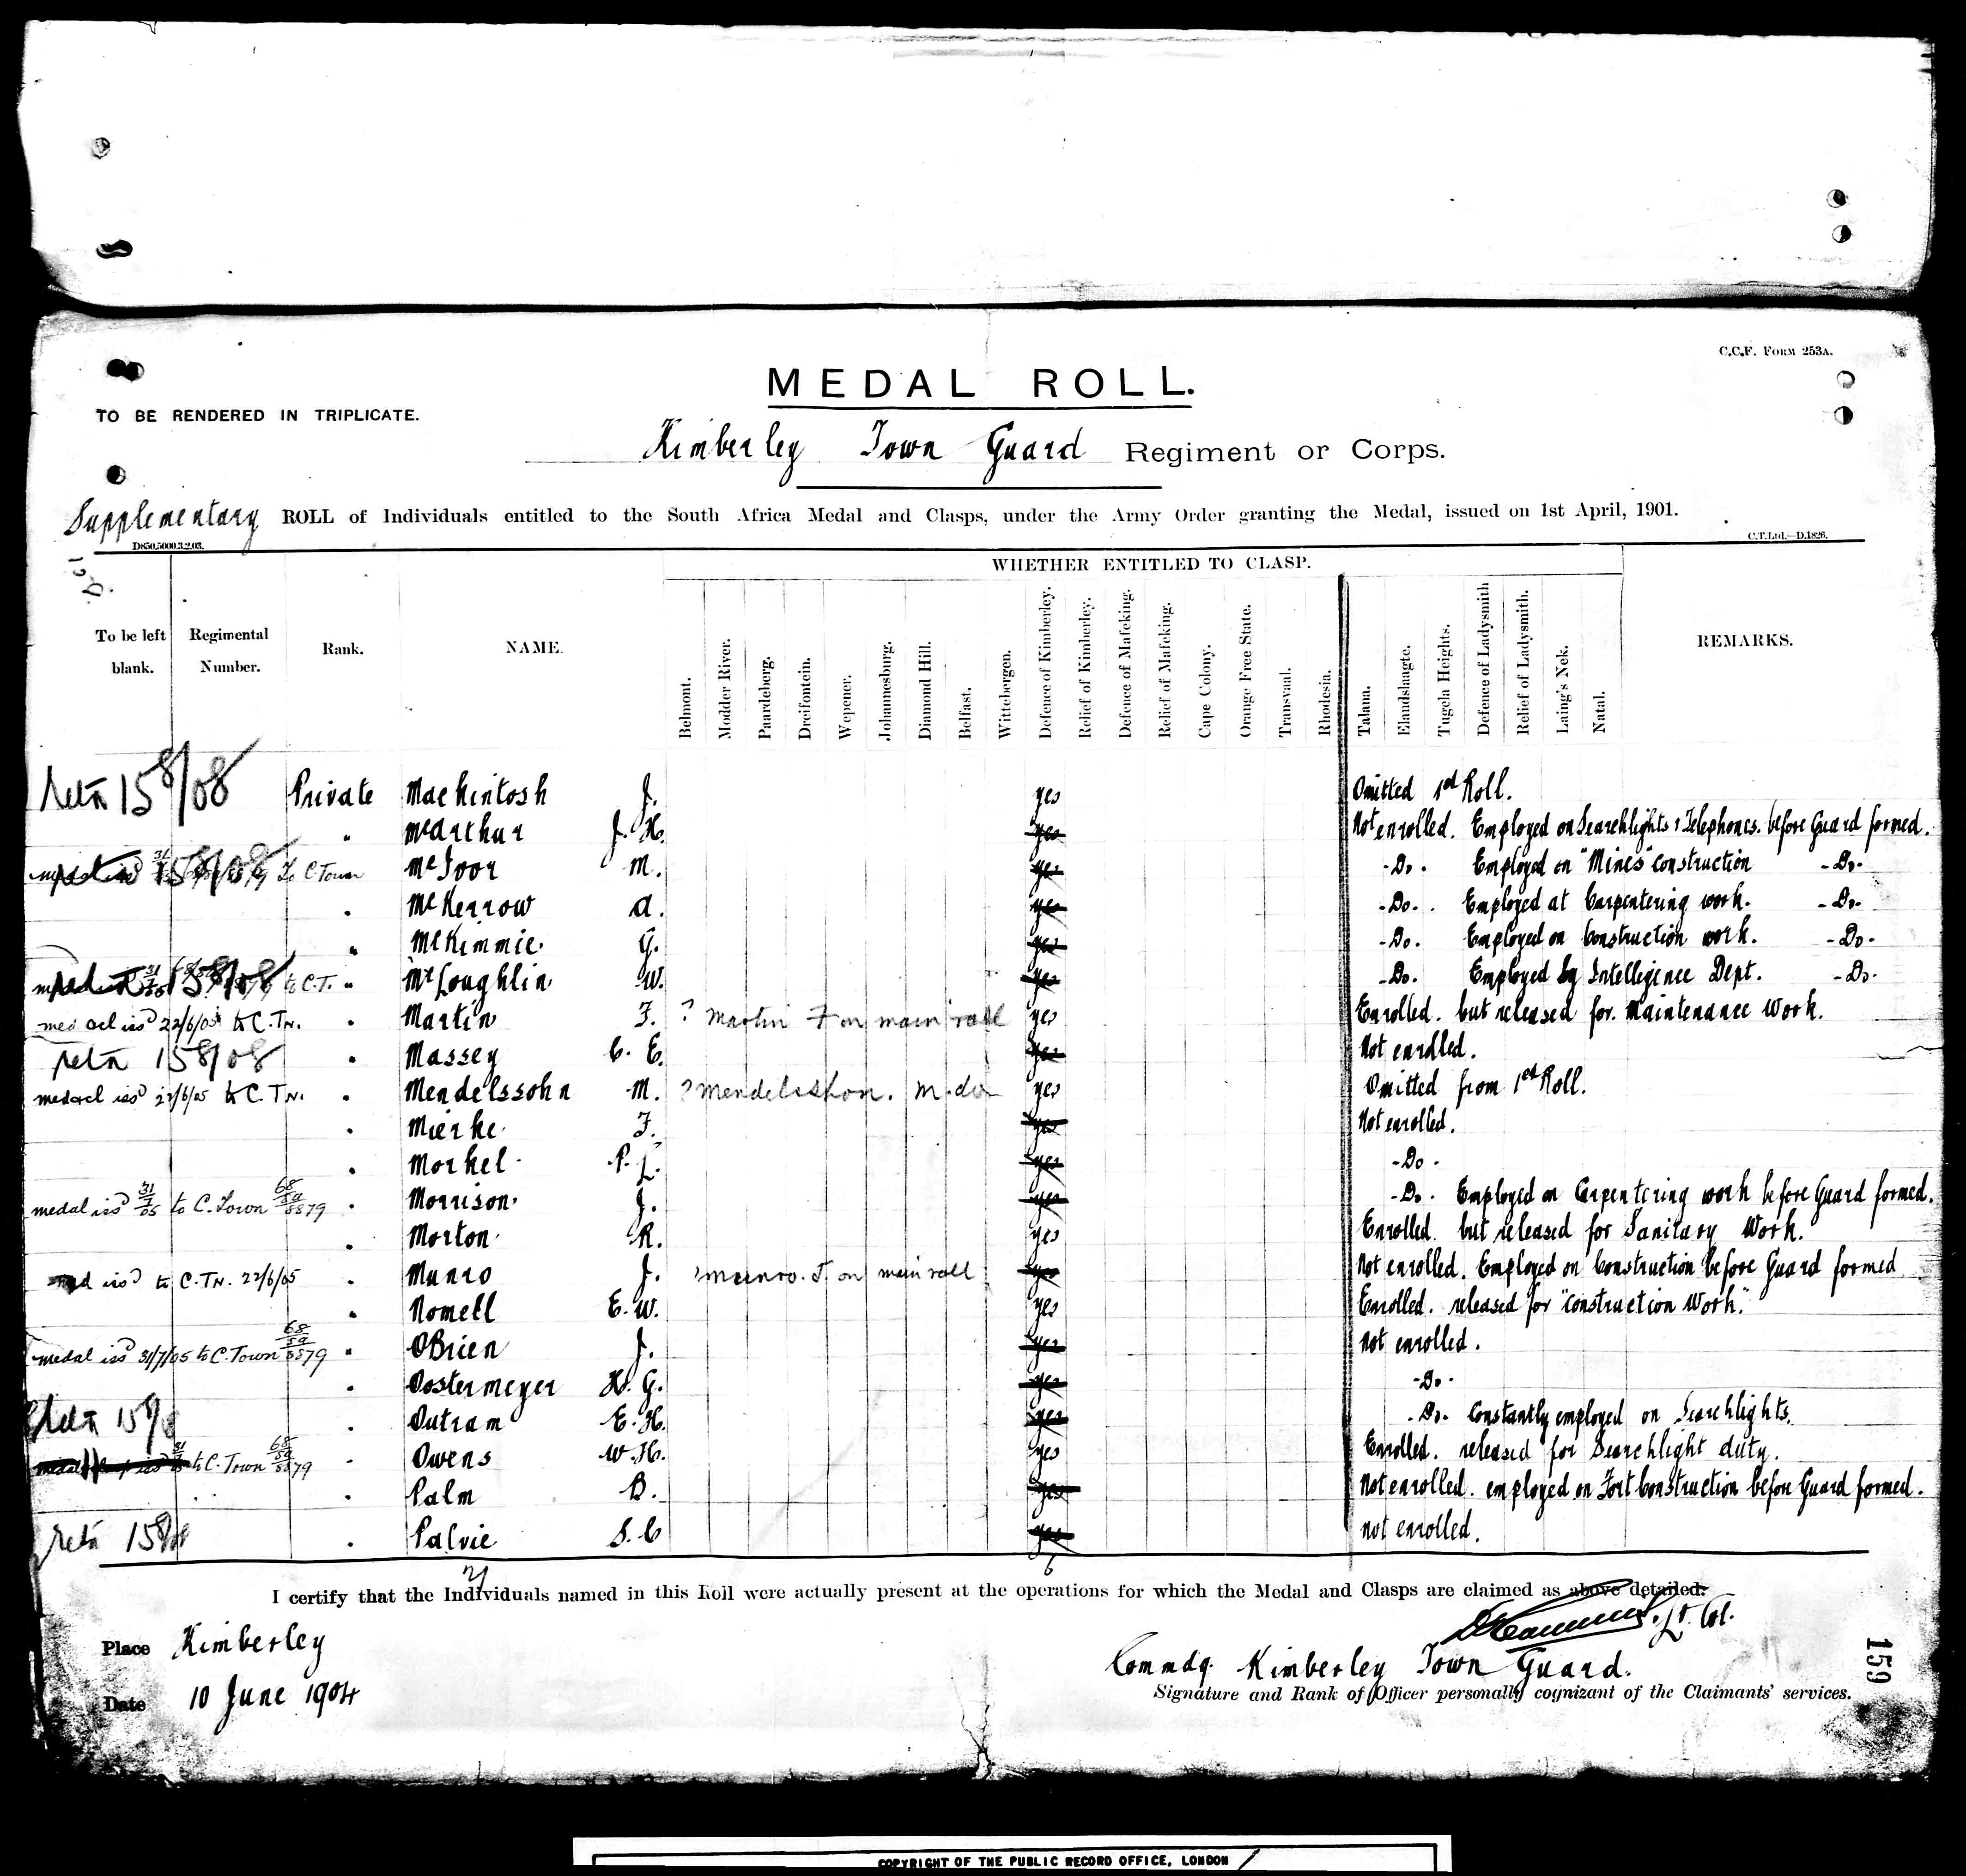 C.C.F. FORM 253A.
MEDAL ROLL.
TO BE RENDERED IN TRIPLICATE.
Kimberley Town Guard Regiment or Corps.
Supplementary ROLL of Individuals entitled to the South Africa Medal and Clasps, under the Army Order granting the Medal, issued on 1st April, 1901.
D850.5000.3.2.03.
C.T.Ltd.—D.1826.
WHETHER ENTITLED TO CLASP.
To be left blank.
Regimental Number.
Rank.
NAME.
Belmont.
Modder River.
Paardeberg.
Dreifontein.
Wepener.
Johannesburg.
Diamond Hill.
Belfast.
Wittebergen.
Defence of Kimberley.
Relief of Kimberley.
Defence of Mafeking.
Relief of Mafeking.
Cape Colony.
Orange Free State.
Transvaal.
Rhodesia.
Talana.
Elandslaagte.
Tugela Heights.
Defence of Ladysmith
Relief of Ladysmith.
Laing's Nek.
Natal.
REMARKS.
retn 15/8/08 Private Mackintosh J. yes Omitted 1st Roll.
" McArthur J. H. yes Not enrolled. Employed on Searchlights & Telephones. before Guard formed.
to C Town McIvor M. yes -Do. Employed on "Mines" construction -Do-
" McKerrow A. yes -Do. Employed at Carpentering work. -Do-
" McKimmie G. yes -Do. Employed on Construction work. -Do-
to C.T. " McLoughlin W. yes -Do. Employed by Intelligence Dept. -Do-
medal issd 22/6/05 to C.TN. " Martin F. ? Martin F on main roll yes Enrolled. but released for Maintenance Work.
retn 15/8/08 " Massey C. E. yes Not enrolled.
medal issd 22/6/05 to C.TN. " Mendelssohn M. ? Mendelsshon. M. do yes Omitted from 1st Roll.
" Mierke F. yes Not enrolled.
" Morkel P. L. yes -Do-
medal issd 31/7/05 to C. Town 68/SA/8879 " Morrison J. yes -Do. Employed on Carpentering work before Guard formed.
" Morton R. yes Enrolled. but released for Sanitary Work.
med issd to C.TN. 22/6/05 " Munro J. ? Munro. J. on main roll yes Not enrolled. Employed on Construction before Guard formed
" Nomell E. W. yes Enrolled. released for "Construction Work."
medal issd 31/7/05 to C. Town 68/SA/8879 " OBrien J. yes Not enrolled.
" Oostermeyer H. G. yes -Do-
Retn 15/8/8 " Outram E. H. yes -Do. Constantly employed on Searchlights.
to C. Town 68/SA/8879 " Owens W. H. yes Enrolled. released for Searchlight duty.
" Palm B. yes Not enrolled. employed on Fort Construction before Guard formed.
retn 15/8/08 " Palvie S. C yes not enrolled.
21 6
I certify that the Individuals named in this Roll were actually present at the operations for which the Medal and Clasps are claimed as above detailed.
Lt. Col.
Place Kimberley
Commdg. Kimberley Town Guard.
Signature and Rank of Officer personally cognizant of the Claimants' services.
Date 10 June 1904
159
COPYRIGHT OF THE PUBLIC RECORD OFFICE, LONDON